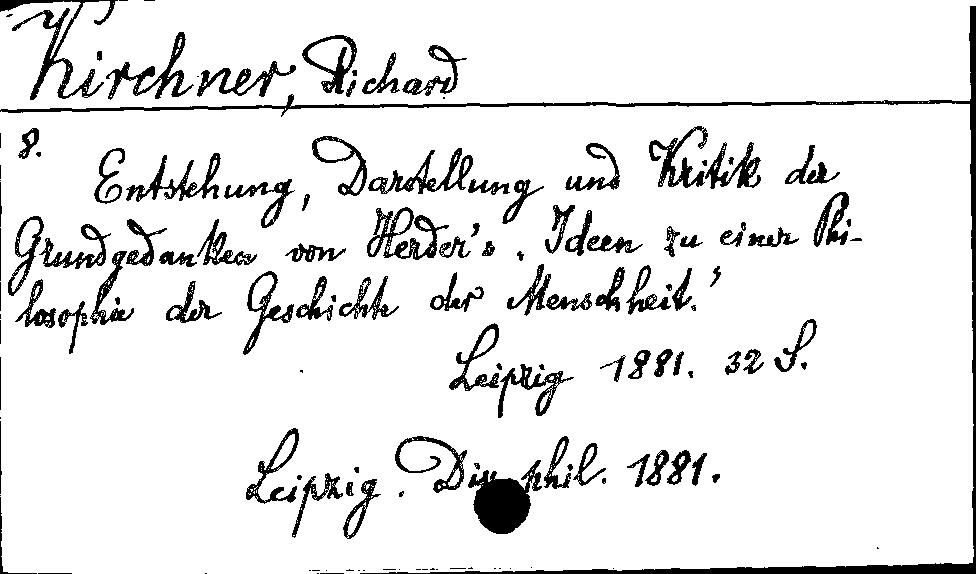 Kirchner, Richard
8.
Entstehung, Darstellung und Kritik der
Grundgedanken von Herder's ‚Ideen zu einer Phi-
losophie der Geschichte der Menschheit.'
Leipzig 1881. 32 S.
Leipzig. Diss. phil. 1881.